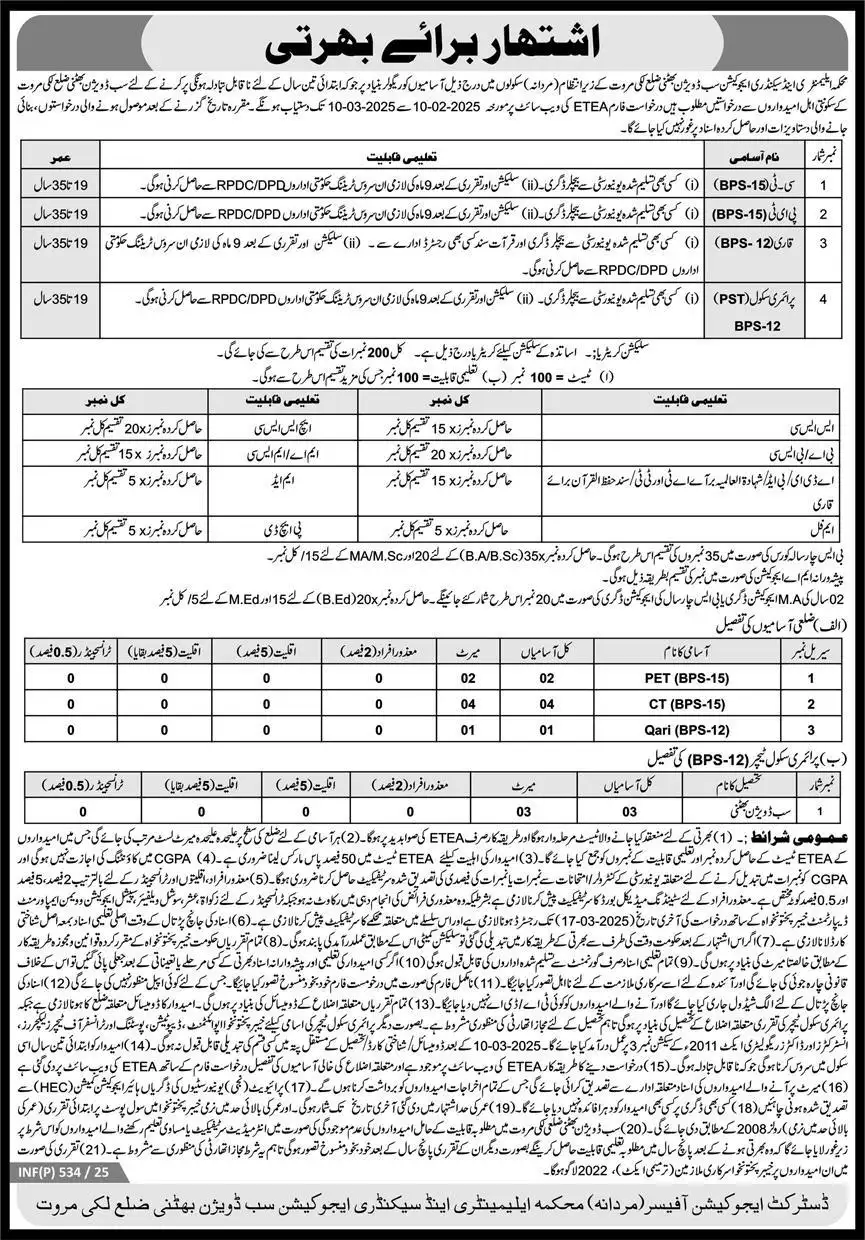 اشتہار برائے بھرتی
محکمہ ایلیمنٹری اینڈ سیکنڈری ایجوکیشن سب ڈویژن بھٹنی ضلع لکی مروت کے زیر انتظام (مردانہ) سکولوں میں درج ذیل آسامیوں کو ریگولر بنیاد پر جو کہ ابتدائی تین سال کے لئے ناقابل تبادلہ ہونگی پر کرنے کے لئے سب ڈویژن بھٹنی ضلع لکی مروت
کے سکونتی اہل امیدواروں سے درخواستیں مطلوب ہیں درخواست فارم ETEA کی ویب سائٹ پر مورخہ 2025-02-10 سے 2025-03-10 تک دستیاب ہونگے۔ مقررہ تاریخ گزرنے کے بعد موصول ہونے والی درخواستوں، بنائی
جانے والی دستاویزات اور حاصل کردہ اسناد پر غور نہیں کیا جائے گا۔
نمبر شمار نام آسامی تعلیمی قابلیت عمر
1 سی۔ٹی (BPS-15) (i) کسی بھی تسلیم شدہ یونیورسٹی سے بیچلر ڈگری۔ (ii) سلیکشن اور تقرری کے بعد 9 ماہ کی لازمی ان سروس ٹریننگ حکومتی اداروں RPDC/DPD سے حاصل کرنی ہوگی۔ 19 تا 35 سال
2 پی ای ٹی (BPS-15) (i) کسی بھی تسلیم شدہ یونیورسٹی سے بیچلر ڈگری۔ (ii) سلیکشن اور تقرری کے بعد 9 ماہ کی لازمی ان سروس ٹریننگ حکومتی اداروں RPDC/DPD سے حاصل کرنی ہوگی۔ 19 تا 35 سال
3 قاری (BPS- 12) (i) کسی بھی تسلیم شدہ یونیورسٹی سے بیچلر ڈگری اور قرآت سند کسی بھی رجسٹرڈ ادارے سے۔ (ii) سلیکشن اور تقرری کے بعد 9 ماہ کی لازمی ان سروس ٹریننگ حکومتی 19 تا 35 سال
اداروں RPDC/DPD سے حاصل کرنی ہوگی۔
4 پرائمری سکول (PST) (i) کسی بھی تسلیم شدہ یونیورسٹی سے بیچلر ڈگری۔ (ii) سلیکشن اور تقرری کے بعد 9 ماہ کی لازمی ان سروس ٹریننگ حکومتی اداروں RPDC/DPD سے حاصل کرنی ہوگی۔ 19 تا 35 سال
BPS-12
سلیکشن کریٹریا:۔ اساتذہ کے سلیکشن کیلئے کریٹریا درج ذیل ہے۔ کل 200 نمبرات کی تقسیم اس طرح سے کی جائے گی۔
(ا) ٹیسٹ = 100 نمبر (ب) تعلیمی قابلیت = 100 نمبر جس کی مزید تقسیم اس طرح سے ہوگی۔
تعلیمی قابلیت کل نمبر تعلیمی قابلیت کل نمبر
ایس ایس سی حاصل کردہ نمبرز x 15 تقسیم کل نمبر ایچ ایس ایس سی حاصل کردہ نمبرز x 20 تقسیم کل نمبر
بی اے/بی ایس سی حاصل کردہ نمبرز x 20 تقسیم کل نمبر ایم اے/ایم ایس سی حاصل کردہ نمبرز x 15 تقسیم کل نمبر
اے ڈی ای/بی ایڈ/شہادۃ العالمیہ برائے اے ٹی اور ٹی ٹی/سند حفظ القرآن برائے حاصل کردہ نمبرز x 15 تقسیم کل نمبر ایم ایڈ حاصل کردہ نمبرز x 5 تقسیم کل نمبر
قاری
ایم فل حاصل کردہ نمبرز x 5 تقسیم کل نمبر پی ایچ ڈی حاصل کردہ نمبرز x 5 تقسیم کل نمبر
بی ایس چار سالہ کورس کی صورت میں 35 نمبروں کی تقسیم اس طرح ہوگی۔ حاصل کردہ نمبر 35x(B.A/B.Sc) کے لئے 20 اور MA/M.Sc کے لئے 15/کل نمبر۔
پیشہ ورانہ ایم اے ایجوکیشن کی صورت میں نمبر کی تقسیم بطریقہ ذیل ہوگی۔
02 سال کی M.A ایجوکیشن ڈگری یا بی ایس چار سال کی ایجوکیشن ڈگری کی صورت میں 20 نمبر اس طرح شمار کئے جائینگے۔ حاصل کردہ نمبر 20x(B.Ed) کے لئے 15 اور M.Ed کے لئے 5/کل نمبر
(الف) ضلعی آسامیوں کی تفصیل
سیریل نمبر آسامی کا نام کل آسامیاں میرٹ معذور افراد (2 فیصد) اقلیت (5 فیصد) اقلیت (5 فیصد بقایا) ٹرانسجینڈر (0.5 فیصد)
1 PET (BPS-15) 02 02 0 0 0 0
2 CT (BPS-15) 04 04 0 0 0 0
3 Qari (BPS-12) 01 01 0 0 0 0
(ب) پرائمری سکول ٹیچر (BPS-12) کی تفصیل
نمبر شمار تحصیل کا نام کل آسامیاں میرٹ معذور افراد (2 فیصد) اقلیت (5 فیصد) اقلیت (5 فیصد بقایا) ٹرانسجینڈر (0.5 فیصد)
1 سب ڈویژن بھٹنی 03 03 0 0 0 0
عمومی شرائط:۔ (1) بھرتی کے لئے منعقد کیا جانے والا ٹیسٹ مرحلہ وار ہوگا اور طریقہ کار صرف ETEA کی صوابدید پر ہوگا۔ (2) ہر آسامی کے لئے ضلع کی سطح پر علیحدہ علیحدہ میرٹ لسٹ مرتب کی جائے گی جس میں امیدواروں
کے ETEA ٹیسٹ کے حاصل کردہ نمبر اور تعلیمی قابلیت کے نمبروں کو جمع کیا جائے گا۔ (3) امیدوار کی اہلیت کیلئے ETEA ٹیسٹ میں 50 فیصد پاس مارکس لینا ضروری ہے۔ (4) CGPA میں کاؤنٹنگ کی اجازت نہیں ہوگی اور
CGPA کو نمبرات میں تبدیل کرنے کے لئے متعلقہ یونیورسٹی کے کنٹرولر/امتحانات سے نمبرات یا نمبرات کی فیصدی کی تصدیق شدہ سرٹیفکیٹ حاصل کرنا ضروری ہوگا۔ (5) معذور افراد، اقلیتوں اور ٹرانسجینڈر کے لئے بالترتیب 2 فیصد، 5 فیصد
اور 0.5 فیصد کوٹہ مختص ہے۔ معذور افراد کے لئے سٹینڈنگ میڈیکل بورڈ کا سرٹیفکیٹ پیش کرنا لازمی ہے بشرطیکہ وہ معذوری فرائض کی انجام دہی میں رکاوٹ نہ ہو جبکہ ٹرانسجینڈر کے لئے زکواۃ عشر، سوشل ویلفیئر، سپیشل ایجوکیشن و ویمن ایمپاورمنٹ
ڈیپارٹمنٹ خیبر پختونخواہ کے ساتھ درخواست کی آخری تاریخ (2025-03-17) تک رجسٹرڈ ہونا لازمی ہے اور اس سلسلے میں متعلقہ محکمے کا سرٹیفکیٹ پیش کرنا لازمی ہے۔ (6) اسناد کی جانچ پڑتال کے وقت اصلی تعلیمی اسناد بمعہ اصل شناختی
کارڈ لانا لازمی ہے۔ (7) اگر اس اشتہار کے بعد حکومت وقت کی طرف سے بھرتی کے طریقہ کار میں تبدیلی کی گئی تو سلیکشن کمیٹی اس کے مطابق عملدرآمد کی پابند ہوگی۔ (8) تمام تقرریاں حکومت خیبر پختونخواہ کے مقرر کردہ قوانین و مجوزہ طریقہ کار
کے مطابق خالصتاً میرٹ کی بنیاد پر ہوں گی۔ (9) تمام تعلیمی اسناد صرف گورنمنٹ سے تسلیم شدہ اداروں کی قابل قبول ہوگی (10) اگر کسی امیدوار کی تعلیمی اور پیشہ ورانہ اسناد بھرتی کے کسی مرحلے یا تعیناتی کے بعد جعلی پائی گئیں تو اس کے خلاف
قانونی چارہ جوئی کی جائے گی اور آئندہ کے لئے اسے سرکاری ملازمت کے لئے نااہل تصور کیا جائیگا۔ (11) نامکمل فارم کی صورت میں درخواست فارم خود بخود منسوخ تصور کیا جائیگا۔ جس کے لئے کوئی اپیل منظور نہیں کی جائے گی (12) اسناد کی
جانچ پڑتال کے لئے الگ شیڈول جاری کیا جائے گا اور آنے والے امیدواروں کو کوئی ٹی اے/ڈی اے نہیں دیا جائیگا۔ (13) تمام تقرریاں متعلقہ اضلاع کے ڈومیسائل کی بنیاد پر ہوں گی۔ امیدوار کا ڈومیسائل متعلقہ ضلع کا ہونا لازمی ہے جبکہ
پرائمری سکول ٹیچر کی تقرری متعلقہ اضلاع کے تحصیل کی بنیاد پر ہوگی تاہم تحصیل کے لئے مجاز اتھارٹی کی منظوری سے مشروط ہے۔ بصورت دیگر پرائمری سکول ٹیچر کی اسامی کیلئے خیبر پختونخوا اپوائنٹمنٹ، ڈیپوٹیشن، پوسٹنگ اور ٹرانسفر آف ٹیچرز لیکچررز،
انسٹرکٹرز اور ڈاکٹرز ریگولیٹری ایکٹ 2011ء کے سیکشن نمبر 3 پر عمل درآمد کیا جائے گا۔ 2025-03-10 کے بعد ڈومیسائل/شناختی کارڈ/تحصیل کے مستقل پتہ میں کسی قسم کی تبدیلی قابل قبول نہ ہوگی۔ (14) امیدوار کو ابتدائی تین سال اسی
سکول میں سروس کرنی ہوگی جو کہ ناقابل تبادلہ ہوگا۔ (15) درخواست دینے کا طریقہ کار ETEA کی ویب سائٹ پر موجود ہے اور متعلقہ اضلاع کی خالی آسامیوں کی تفصیل درخواست فارم کے ساتھ ETEA کی ویب سائٹ پر دی گئی ہے
(16) میرٹ پر آنے والے امیدواروں کی اسناد متعلقہ ادارے سے تصدیق کرائی جائے گی جس کے تمام اخراجات امیدواروں کو برداشت کرنا ہوں گے۔ (17) پرائیویٹ (نجی) یونیورسٹیوں کی ڈگریاں ہائیر ایجوکیشن کمیشن (HEC) سے
تصدیق شدہ ہونی چاہئیں (18) کسی بھی ڈگری پر کسی بھی امیدوار کو دہرا فائدہ نہیں دیا جائے گا۔ (19) عمر کی حد اشتہار میں دی گئی آخری تاریخ تک شمار ہوگی۔ اور عمر کی بالائی حد میں نرمی خیبر پختونخوا میں سول پوسٹ پر ابتدائی تقرری (عمر کی
بالائی حد میں نرمی) رولز 2008 کے مطابق دی جائے گی۔ (20) سب ڈویژن بھٹنی ضلع لکی مروت میں مطلوبہ قابلیت کے حامل امیدواروں کی عدم موجودگی کی صورت میں انٹرمیڈیٹ سرٹیفکیٹ یا مساوی تعلیم رکھنے والے امیدواروں کو اس شرط پر
زیر غور لایا جائے گا کہ وہ بھرتی ہونے کے بعد پانچ سال میں مطلوبہ تعلیمی قابلیت حاصل کرینگے بصورت دیگر ان کے تقرری پانچ سال کے بعد خود بخود منسوخ تصور ہوگی تاہم یہ شرط مجاز اتھارٹی کی منظوری سے مشروط ہے۔ (21) تقرری کی صورت
میں ان امیدواروں پر خیبر پختونخوا سرکاری ملازمین (ترمیمی ایکٹ)، 2022 لاگو ہوگا۔
INF(P) 534 / 25
ڈسٹرکٹ ایجوکیشن آفیسر (مردانہ) محکمہ ایلیمینٹری اینڈ سیکنڈری ایجوکیشن سب ڈویژن بھٹنی ضلع لکی مروت